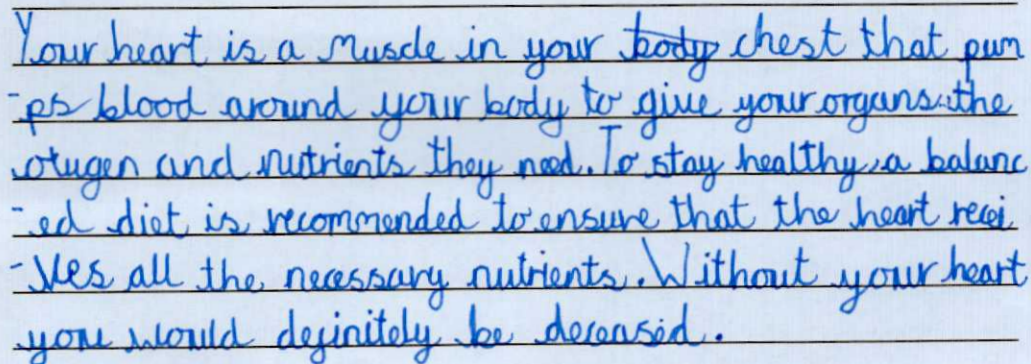 Your heart is a muscle in your body chest that pum
-ps blood around your body to give your organs the
oxugen and nutrients they need. To stay healthy, a balanc
-ed diet is recommended to ensure that the heart recei
-ves all the necessary nutrients. Without your heart
you would definitely be deceased.